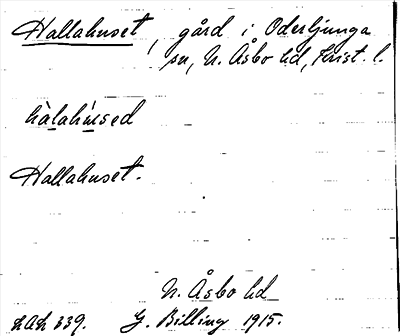 Hallahuset, gård i Oderljunga
sn, N. Åsbo hd, Krist. l.
hàlahúsed
Hallahuset.
N. Åsbo hd
LAL 339. G. Billing 1915.